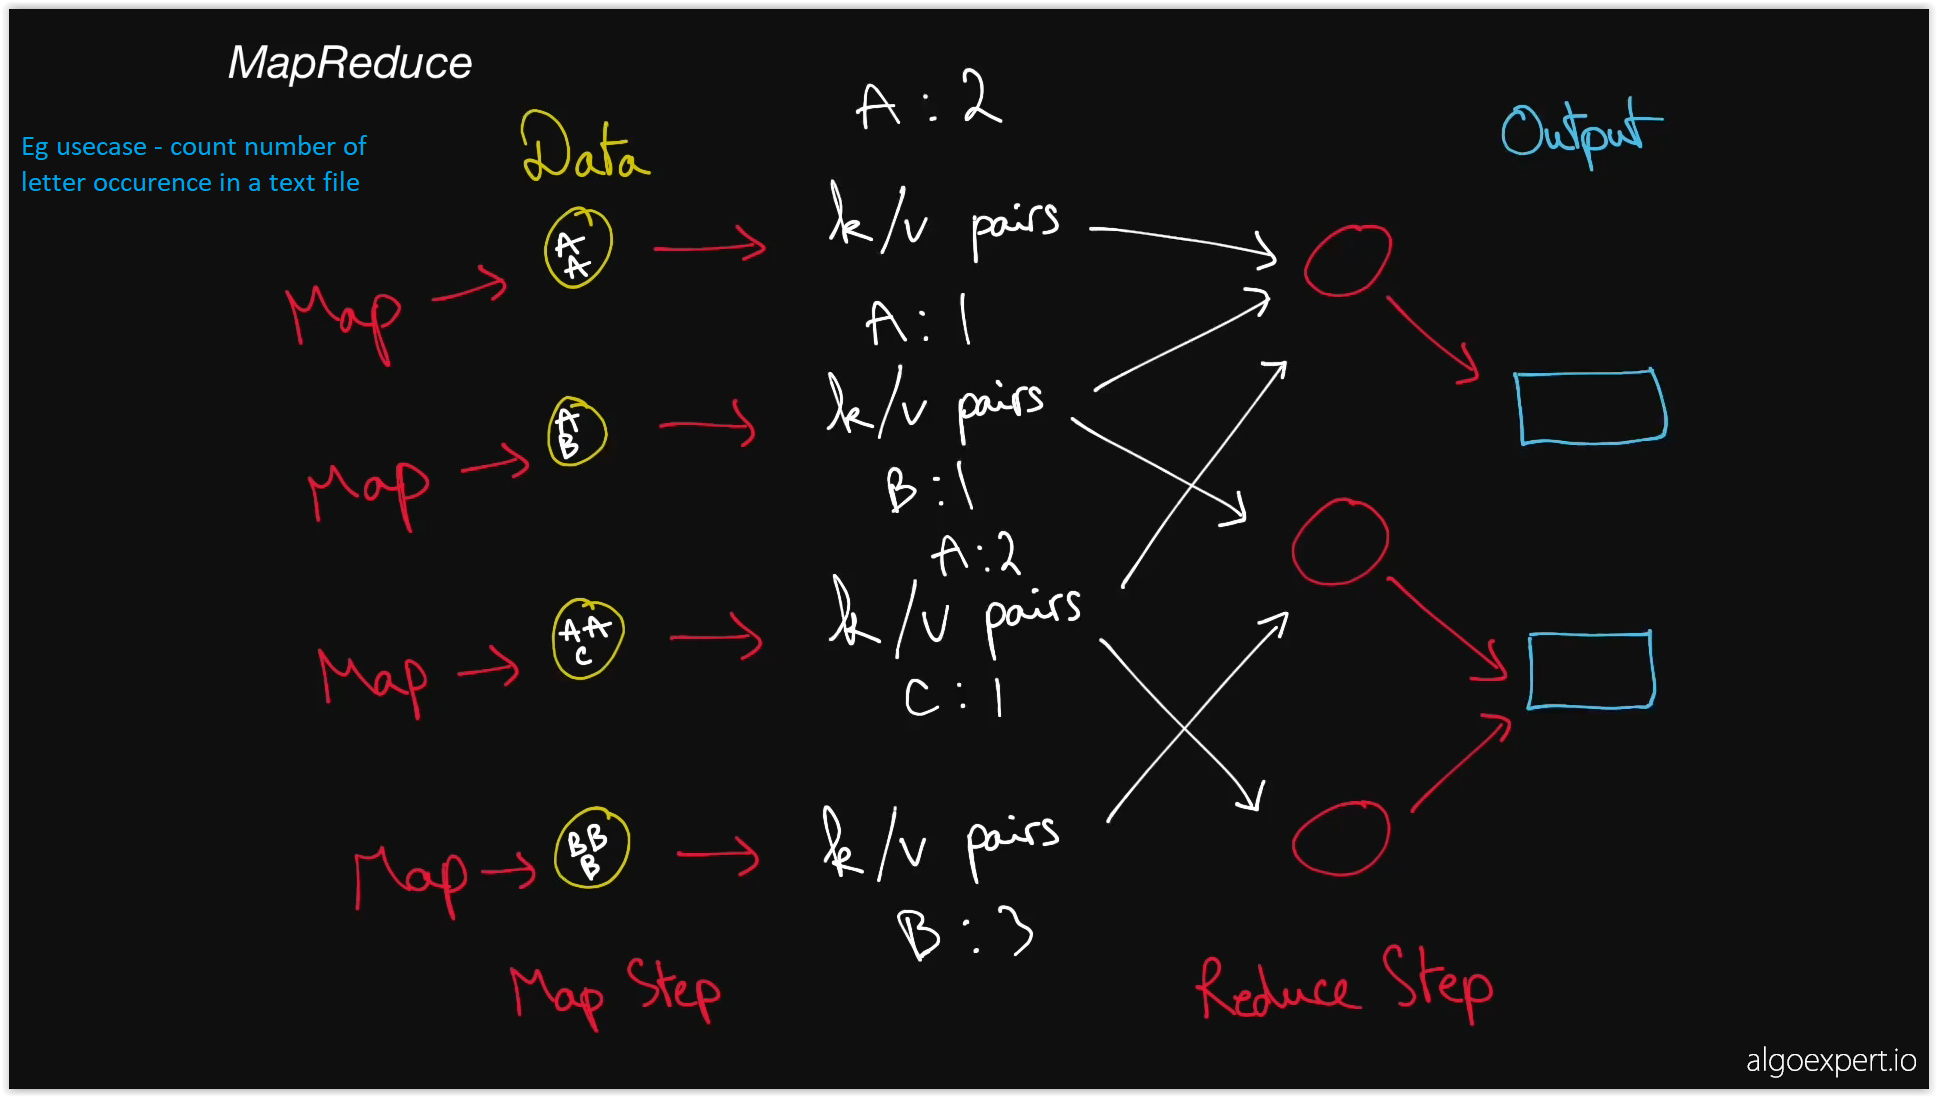 MapReduce
Eg usecase - count number of
letter occurence in a text file
Data
A : 2
Output
A
A
k/v pairs
Map
A : 1
A
B
k/v pairs
Map
B : 1
A : 2
A A
C
k/v pairs
Map
C : 1
B B
B
k/v pairs
Map
B : 3
Map Step
Reduce Step
algoexpert.io